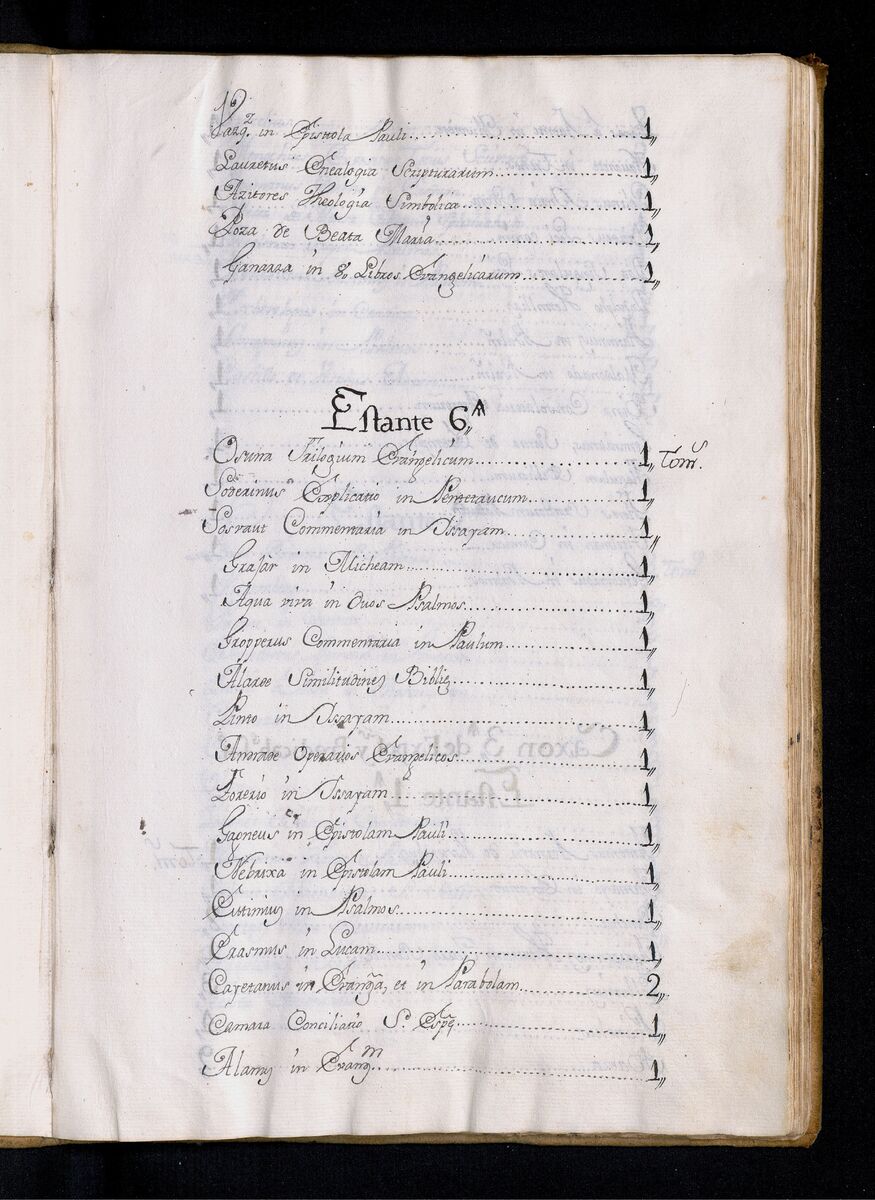 Vazq.z in Epistola Pauli 1,,
Lauretus Genealogia Scripturarum 1,,
Azitores Theologia Simbolica 1,,
Poza de Beata Maria 1,,
Ganarra in 8. Libros Evangelicarum 1,,
Estante 6,,A
Osuna Trilogium Evangelicum 1,, Toms.
Soderinus Explicatio in Pentetaucum 1,,
Sosvaut Commentaria in Issayam 1,,
Grasar in Micheam 1,,
Aqua viva in duos Psalmos 1,,
Gropperus Commentaria in Paulum 1,,
Alarde Similitudines Biblię 1,,
Pinto in Issayam 1,,
Andrade Operarios Evangelicos 1,,
Forerio in Issayam 1,,
Gagneus in Epistolam Pauli 1,,
Nebrixa in Epistolam Pauli 1,,
Cittinius in Psalmos 1,,
Erasmus in Lucam 1,,
Cayetanus in Evangª, et in Parabolam 2,,
Camara Conciliatio S. 1,,
Alamus in Evangm 1,,